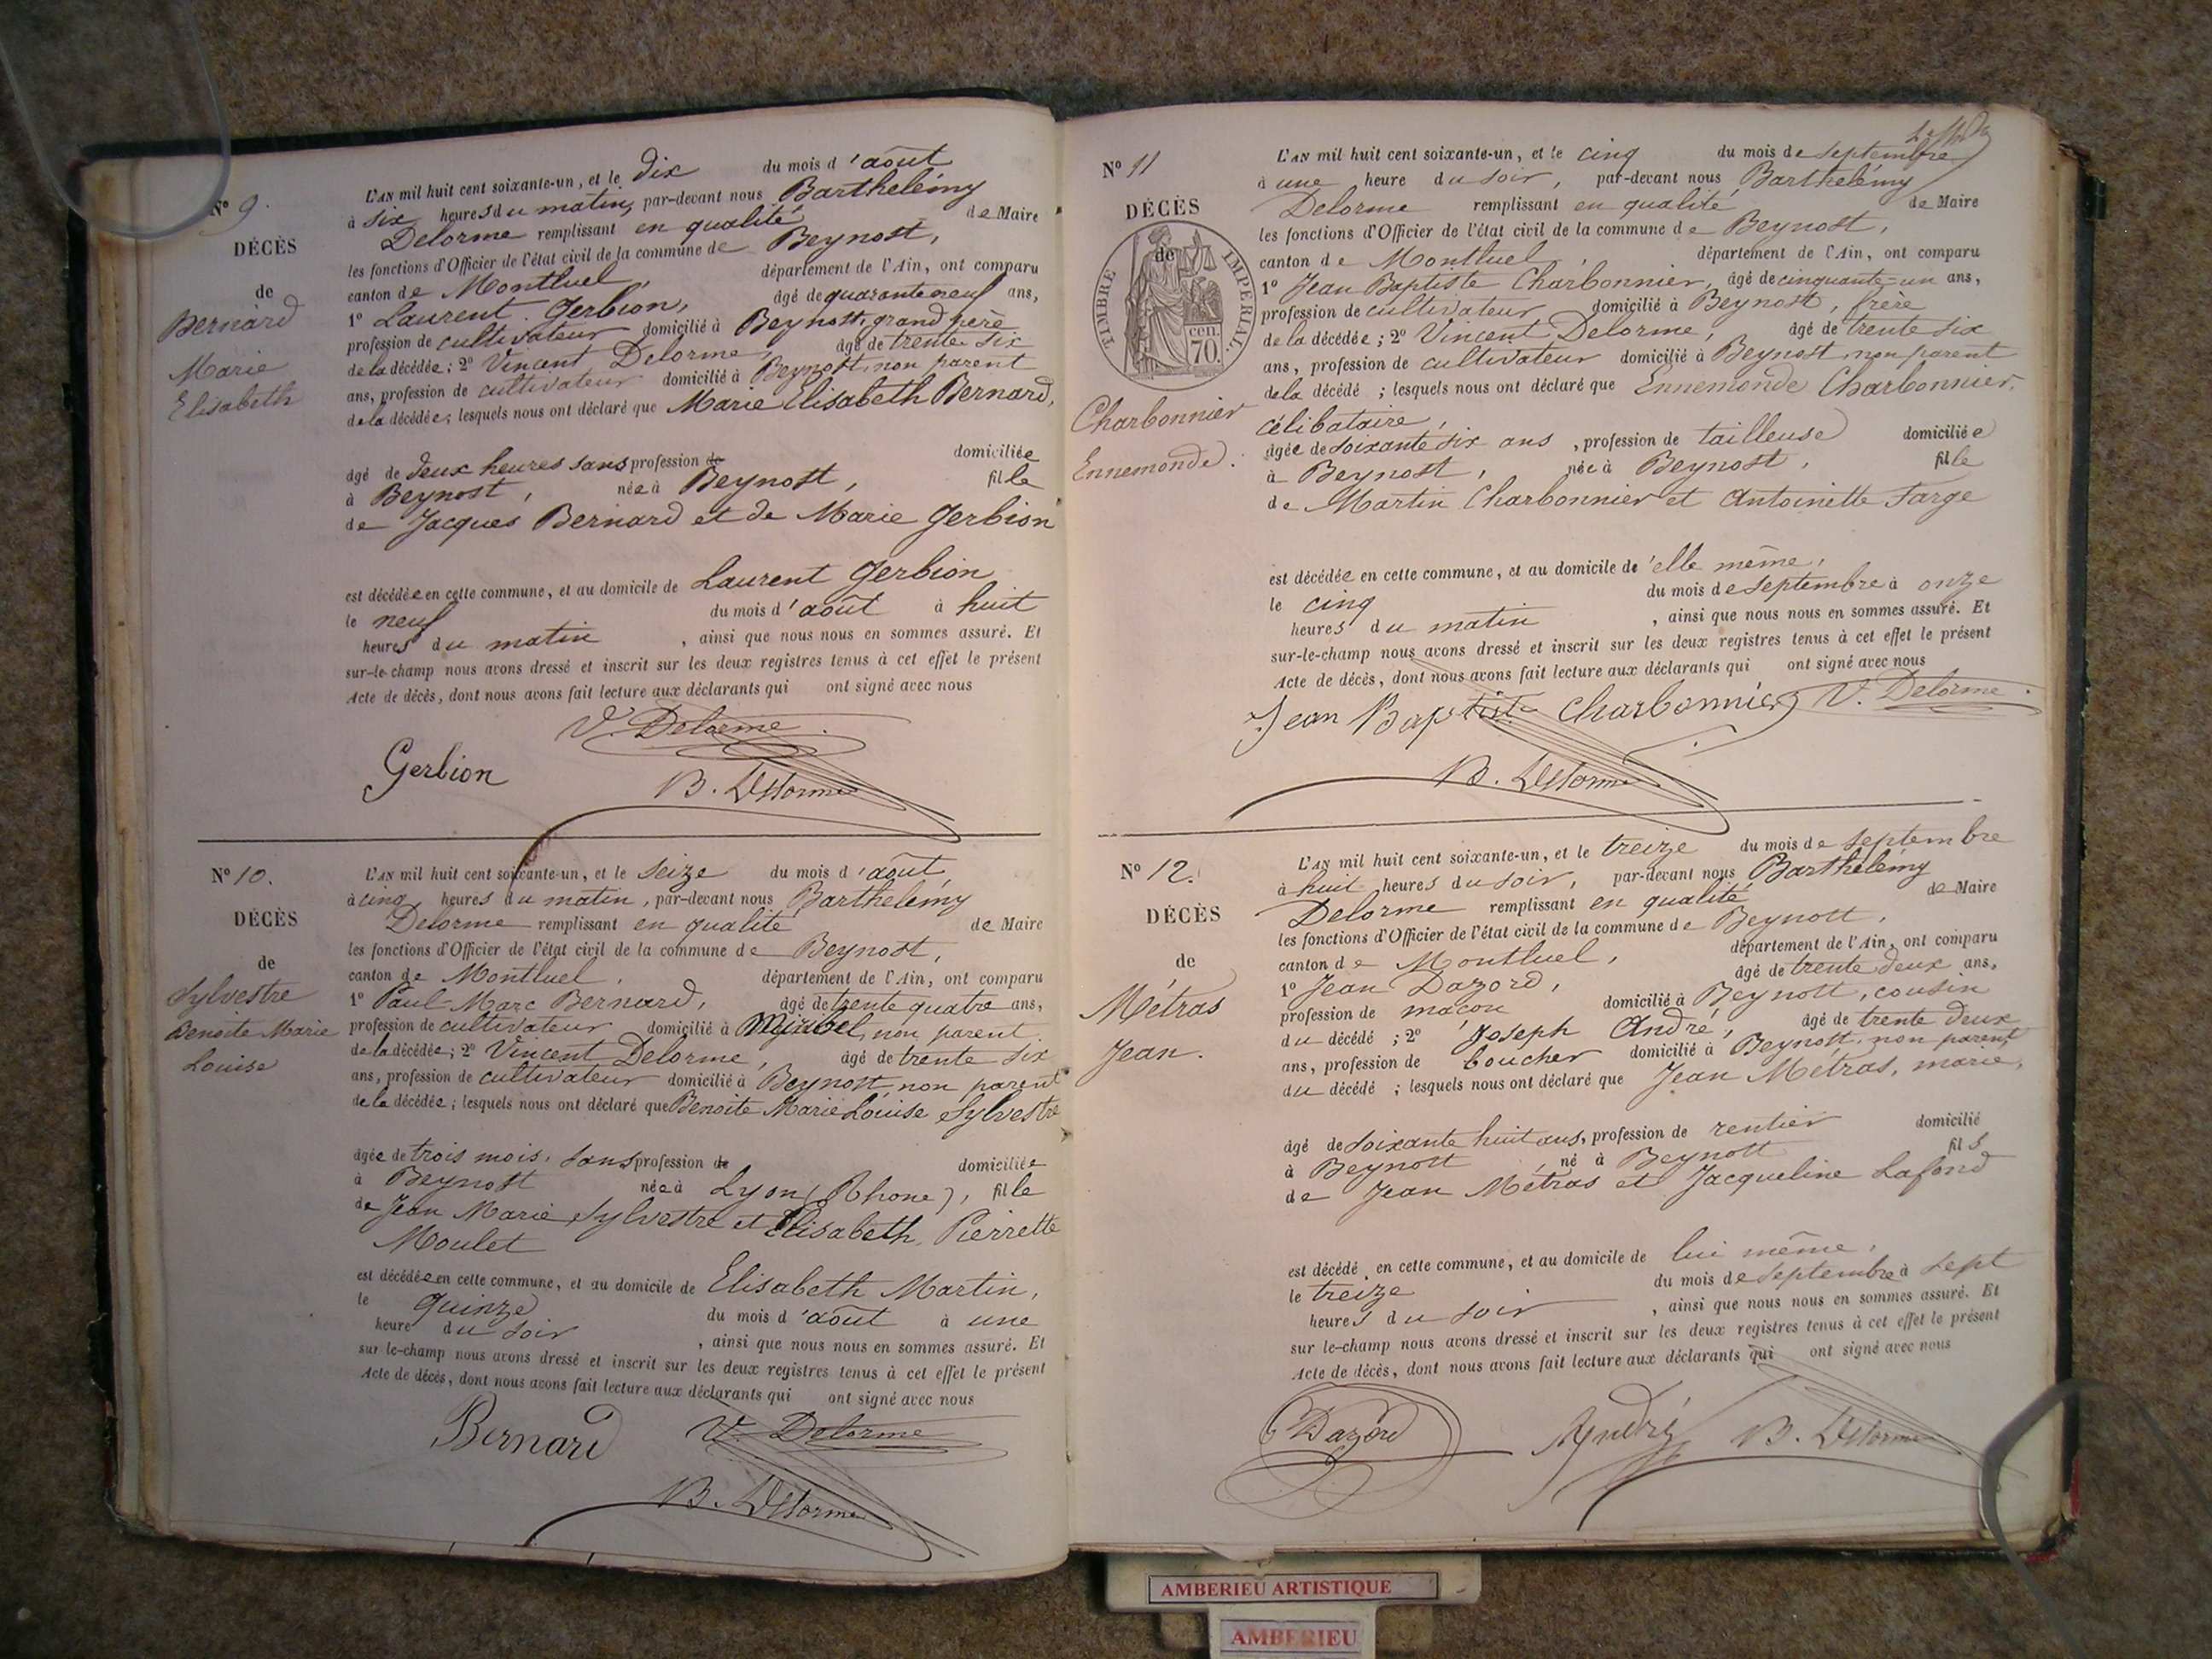 N° 9.
DÉCÈS
de
Bernard
Marie
Elisabeth
L'AN mil huit cent soixante-un, et le dix du mois d'août
à six heures du matin, par-devant nous Barthelémy
Delorme remplissant en qualité de Maire
les fonctions d'Officier de l'état civil de la commune de Beynost,
canton de Montluel, département de l'Ain, ont comparu
1° Laurent Gerbion, âgé de quarante neuf ans,
profession de cultivateur domicilié à Beynost, grand père
de la décédée; 2° Vincent Delorme, âgé de trente six
ans, profession de cultivateur domicilié à Beynost, non parent
de la décédée; lesquels nous ont déclaré que Marie Elisabeth Bernard,
âgé de deux heures sans profession de domiciliée
à Beynost, née à Beynost, fille
de Jacques Bernard et de Marie Gerbion
est décédée en cette commune, et au domicile de Laurent Gerbion
le neuf du mois d'août à huit
heures du matin, ainsi que nous nous en sommes assuré. Et
sur-le-champ nous avons dressé et inscrit sur les deux registres tenus à cet effet le présent
Acte de décès, dont nous avons fait lecture aux déclarants qui ont signé avec nous
V. Delorme
Gerbion
B. Delorme
N° 10.
DÉCÈS
de
Sylvestre
Benoite Marie
Louise
L'AN mil huit cent soixante-un, et le seize du mois d'août,
à cinq heures du matin, par-devant nous Barthelémy
Delorme remplissant en qualité de Maire
les fonctions d'Officier de l'état civil de la commune de Beynost,
canton de Montluel, département de l'Ain, ont comparu
1° Paul Marc Bernard, âgé de trente quatre ans,
profession de cultivateur domicilié à non parent
de la décédée; 2° Vincent Delorme, âgé de trente six
ans, profession de cultivateur domicilié à Beynost, non parent
de la décédée; lesquels nous ont déclaré que Benoite Marie Louise Sylvestre
âgée de trois mois, sans profession de domiciliée
à Beynost née à Lyon (Rhone), fille
de Jean Marie Sylvestre et Elisabeth Pierrette
Moulet
est décédée en cette commune, et au domicile de Elisabeth Martin,
le quinze du mois d'août à une
heure du soir, ainsi que nous nous en sommes assuré. Et
sur le-champ nous avons dressé et inscrit sur les deux registres tenus à cet effet le présent
Acte de décès, dont nous avons fait lecture aux déclarants qui ont signé avec nous
Bernard V. Delorme
B. Delorme
N° 11
DÉCÈS
de
TIMBRE IMPERIAL.
70 cen.
Charbonnier
Ennemonde.
L'AN mil huit cent soixante-un, et le cinq du mois de septembre
à une heure du soir, par-devant nous Barthelémy
Delorme remplissant en qualité de Maire
les fonctions d'Officier de l'état civil de la commune de Beynost,
canton de Montluel, département de l'Ain, ont comparu
1° Jean Baptiste Charbonnier, âgé de cinquante-un ans,
profession de cultivateur domicilié à Beynost, frère
de la décédée; 2° Vincent Delorme, âgé de trente six
ans, profession de cultivateur domicilié à Beynost, non parent
de la décédé; lesquels nous ont déclaré que Ennemonde Charbonnier,
célibataire,
âgée de soixante six ans, profession de tailleuse domiciliée
à Beynost, née à Beynost, fille
de Martin Charbonnier et Antoinette Farge
est décédée en cette commune, et au domicile de 'elle même,
le cinq du mois de septembre à onze
heures du matin, ainsi que nous nous en sommes assuré. Et
sur-le-champ nous avons dressé et inscrit sur les deux registres tenus à cet effet le présent
Acte de décès, dont nous avons fait lecture aux déclarants qui ont signé avec nous
Jean Baptiste Charbonnier V. Delorme
B. Delorme
N° 12.
DÉCÈS
de
Métras
Jean.
L'AN mil huit cent soixante-un, et le treize du mois de septembre
à huit heures du soir, par-devant nous Barthélémy
Delorme remplissant en qualité de Maire
les fonctions d'Officier de l'état civil de la commune de Beynost,
canton de Montluel, département de l'Ain, ont comparu
1° Jean Dazord, âgé de trente deux ans,
profession de maçon domicilié à Beynost, cousin
du décédé; 2° Joseph André, âgé de trente deux
ans, profession de boucher domicilié à Beynost, non parent
du décédé; lesquels nous ont déclaré que Jean Métras, marié,
âgé de soixante huit ans, profession de rentier domicilié
à Beynost né à Beynost fils
de Jean Métras et Jacqueline Lafond
est décédé en cette commune, et au domicile de lui même,
le treize du mois de septembre à sept
heures du soir, ainsi que nous nous en sommes assuré. Et
sur le-champ nous avons dressé et inscrit sur les deux registres tenus à cet effet le présent
Acte de décès, dont nous avons fait lecture aux déclarants qui ont signé avec nous
Dazord André B. Delorme
AMBERIEU ARTISTIQUE
AMBERIEU